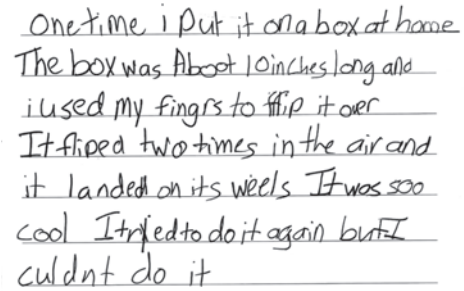 One time i put it on a box at home
The box was Aboot 10 inches long and
i used my fingrs to flip it over
It fliped two times in the air and
it landed on its weels It was soo
cool I tryed to do it again but I
culdnt do it